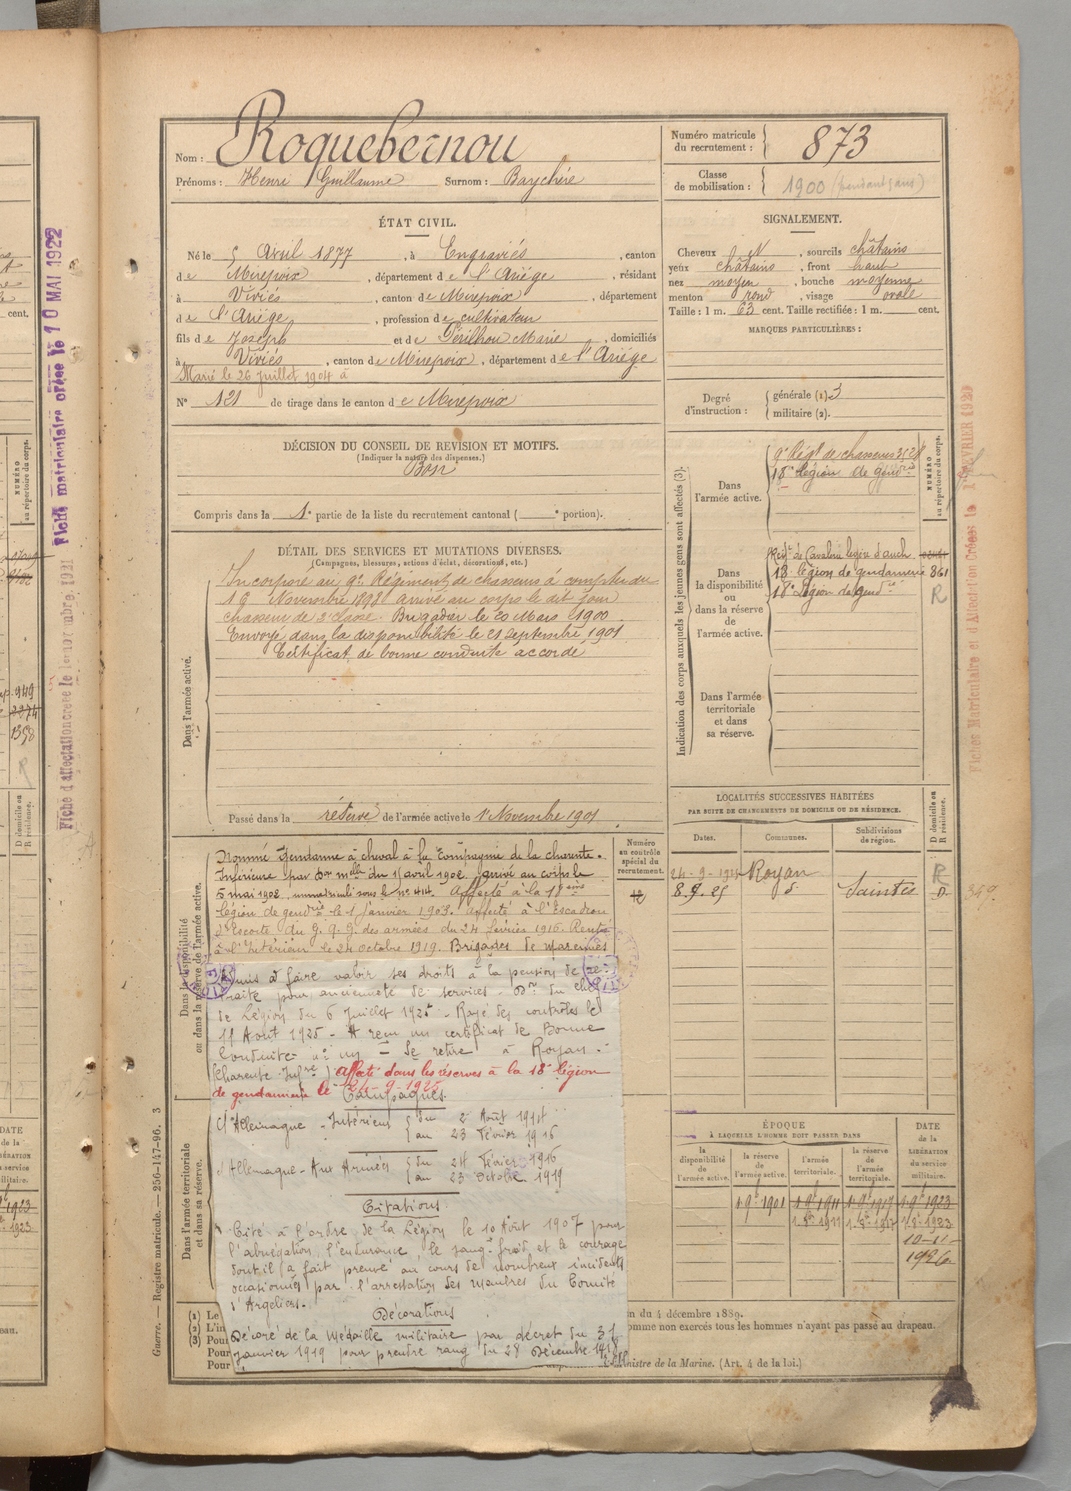 Nom : Roquebernou
Prénoms : Henri Guillaume Surnom : Baychère
Numéro matricule du recrutement : 873
Classe de mobilisation : 1900
ÉTAT CIVIL.
Né le 5 Avril 1877, à Engraviés, canton
de Mirepoix, département de l'Ariége, résidant
à Viviés, canton de Mirepoix, département
de l'Ariége, profession de cultivateur
fils de Joseph et de Périlhou Marie, domiciliés
à Viviés, canton de Mirepoix, département de l'Ariége
Marié le 26 juillet 1904 à
N° 121 de tirage dans le canton de Mirepoix
SIGNALEMENT.
Cheveux N, sourcils châtains
yeux châtains, front haut
nez moyen, bouche moyenne
menton rond, visage ovale
Taille : 1 m. 63 cent. Taille rectifiée : 1 m. cent.
MARQUES PARTICULIÈRES :
Degré d'instruction : générale (1) 3
militaire (2).
DÉCISION DU CONSEIL DE REVISION ET MOTIFS.
(Indiquer la nature des dispenses.)
Bon
Compris dans la 1e partie de la liste du recrutement cantonal ( e portion).
DÉTAIL DES SERVICES ET MUTATIONS DIVERSES.
(Campagnes, blessures, actions d'éclat, décorations, etc.)
Dans l'armée active.
Incorporé au 9e Régiment de chasseurs à compter du
19 Novembre 1898 arrivé au corps le dit jour
chasseur de 2e classe. Brigadier le 20 Mars 1900
Envoyé dans la disponibilité le 21 Septembre 1901
Certificat de bonne conduite accordé
Passé dans la réserve de l'armée active le 1er Novembre 1901
Indication des corps auxquels les jeunes gens sont affectés (3).
NUMÉRO au répertoire du corps.
Dans l'armée active.
9e Régt de chasseurs
18e légion de gendrie
Dans la disponibilité ou dans la réserve de l'armée active.
Regt de Cavalerie légère d'auch
18e légion de gendarmerie 861
18e Légion de gendrie R
Dans l'armée territoriale et dans sa réserve.
LOCALITÉS SUCCESSIVES HABITÉES
PAR SUITE DE CHANGEMENTS DE DOMICILE OU DE RÉSIDENCE.
Dates. Communes. Subdivisions de région. D domicile ou R résidence.
Royan R
8.9.25 d° Saintes D
Dans la disponibilité ou dans la réserve de l'armée active.
Numéro au contrôle spécial du recrutement.
Nommé Gendarme à cheval à la Compagnie de la charente-
Inférieure par Don melle du 15 avril 1902, arrivé au corps le
5 mai 1902, immatriculé sous le n° 414. Affecté à la 18ème
légion de gendrie le 1 Janvier 1903. Affecté à l'Escadron
d'Escorte du G.Q.G. des armées du 24 février 1916. Rentré
à l'Intérieur le 24 octobre 1919. Brigades de marennes
Admis à faire valoir ses droits à la pension de re-
traite pour ancienneté de services. Don du chef
de Légion du 6 Juillet 1925 - Rayé des contrôles le
11 Août 1925 - A reçu un certificat de Bonne
Conduite - Se retire à Royan -
(Charente Infre) Affecté dans les réserves à la 18e légion
de gendarmerie le
Campagnes.
C/ Allemagne - Intérieur du 2 Août 1914
au 23 Février 1916
C/ Allemagne - Aux Armées du 24 Février 1916
au 23 Octobre 1919
Citations.
Cité à l'ordre de la Légion le 10 Août 1907 pour
l'abnégation, l'endurance, le sang-froid et le courage
dont il a fait preuve au cours de nombreux incidents
occasionnés par l'arrestation des membres du Comité
d'Argeliers.
Décorations
Décoré de la Médaille militaire par décret du 31
janvier 1919 pour prendre rang du 28 Décembre 1918
Dans l'armée territoriale et dans sa réserve.
ÉPOQUE
À LAQUELLE L'HOMME DOIT PASSER DANS
la disponibilité de l'armée active. la réserve de l'armée active. l'armée territoriale. la réserve de l'armée territoriale.
DATE de la LIBÉRATION du service militaire.
1.9b 1901 1.9b 1911 1.9b 1917 1.9b 1923
10-11-
1926
(1) Le
(2) L'in
(3) Pour
Pour
Pour
on du 4 décembre 1889.
omme non exercés tous les hommes n'ayant pas passé au drapeau.
Ministre de la Marine. (Art. 4 de la loi.)
Guerre. — Registre matricule. — 256-147-96. 3
Fiche matriculaire créée le 10 MAI 1922